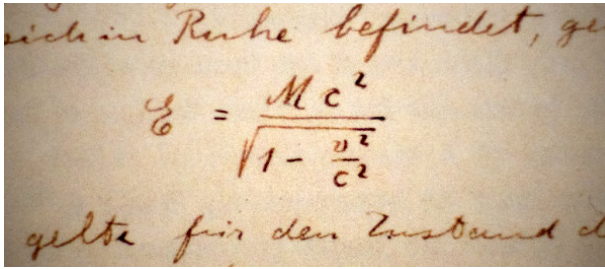 sich in Ruhe befindet, ge
E = M c² / √(1 - v²/c²)
gelte für den Zustand d